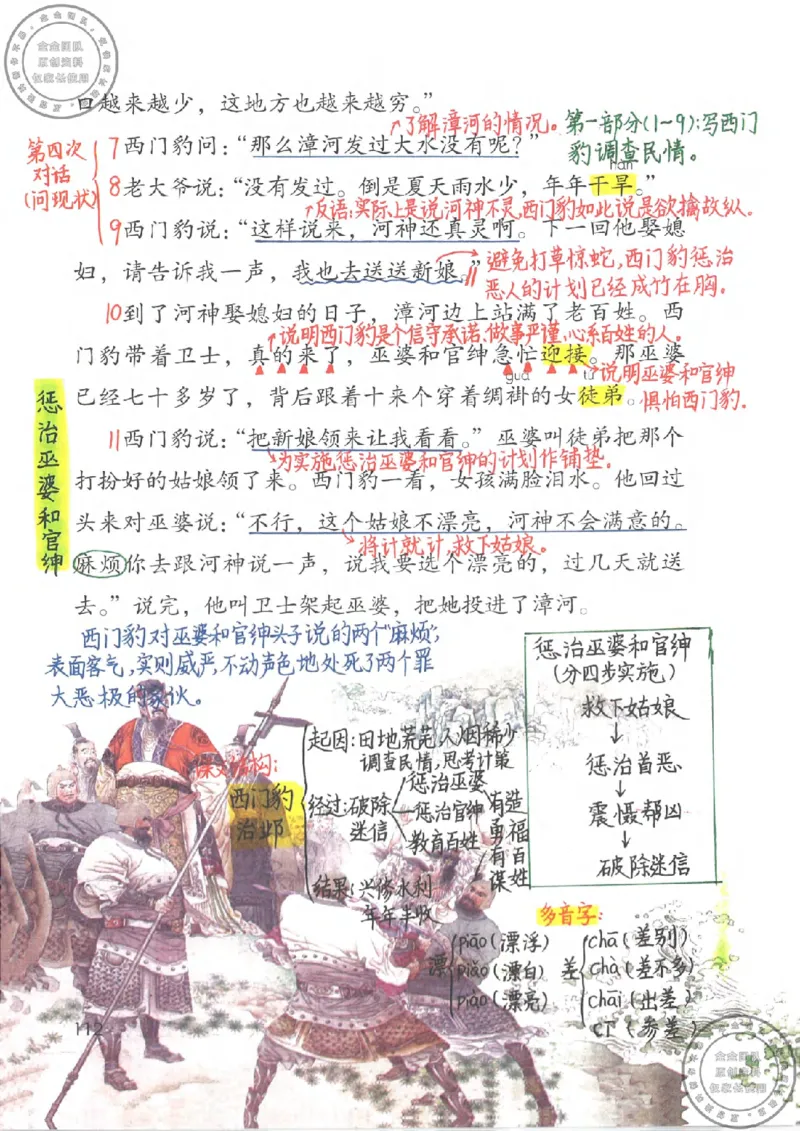 金金团队
原创资料
仅家长使用
口越来越少，这地方也越来越穷。”
了解漳河的情况。
第一部分(1~9):写西门
豹调查民情。
第四次
对话
(问现状)
7西门豹问：“那么漳河发过大水没有呢？”
hàn
8老大爷说：“没有发过。倒是夏天雨水少，年年干旱。”
反语:实际上是说河神不灵,西门豹如此说是欲擒故纵。
9西门豹说：“这样说来，河神还真灵啊。下一回他娶媳
妇，请告诉我一声，我也去送送新娘。”
避免打草惊蛇,西门豹惩治
恶人的计划已经成竹在胸。
10到了河神娶媳妇的日子，漳河边上站满了老百姓。西
说明西门豹是个信守承诺、做事严谨,心系百姓的人。
门豹带着卫士，真的来了，巫婆和官绅急忙迎接。那巫婆
说明巫婆和官绅
惧怕西门豹.
guà
tú
已经七十多岁了，背后跟着十来个穿着绸褂的女徒弟。
惩治巫婆和官绅
11西门豹说：“把新娘领来让我看看。”巫婆叫徒弟把那个
为实施惩治巫婆和官绅的计划作铺垫。
打扮好的姑娘领了来。西门豹一看，女孩满脸泪水。他回过
头来对巫婆说：“不行，这个姑娘不漂亮，河神不会满意的。
将计就计,救下姑娘。
麻烦你去跟河神说一声，说我要选个漂亮的，过几天就送
去。”说完，他叫卫士架起巫婆，把她投进了漳河。
西门豹对巫婆和官绅头子说的两个“麻烦”,
表面客气,实则威严,不动声色地处死了两个罪
大恶极的家伙。
惩治巫婆和官绅
(分四步实施)
救下姑娘
↓
惩治首恶
↓
震慑帮凶
↓
破除迷信
课文结构:
西门豹
治邺
起因:田地荒芜人烟稀少
调查民情,思考计策
经过:破除
迷信
惩治巫婆
惩治官绅
教育百姓
结果:兴修水利
年年丰收
有造
勇福
有百
谋姓
多音字:
漂
piāo(漂浮)
piǎo(漂白)
piào(漂亮)
差
chā(差别)
chà(差不多)
chāi(出差)
cī(参差)
112
金金团队
原创资料
仅家长使用